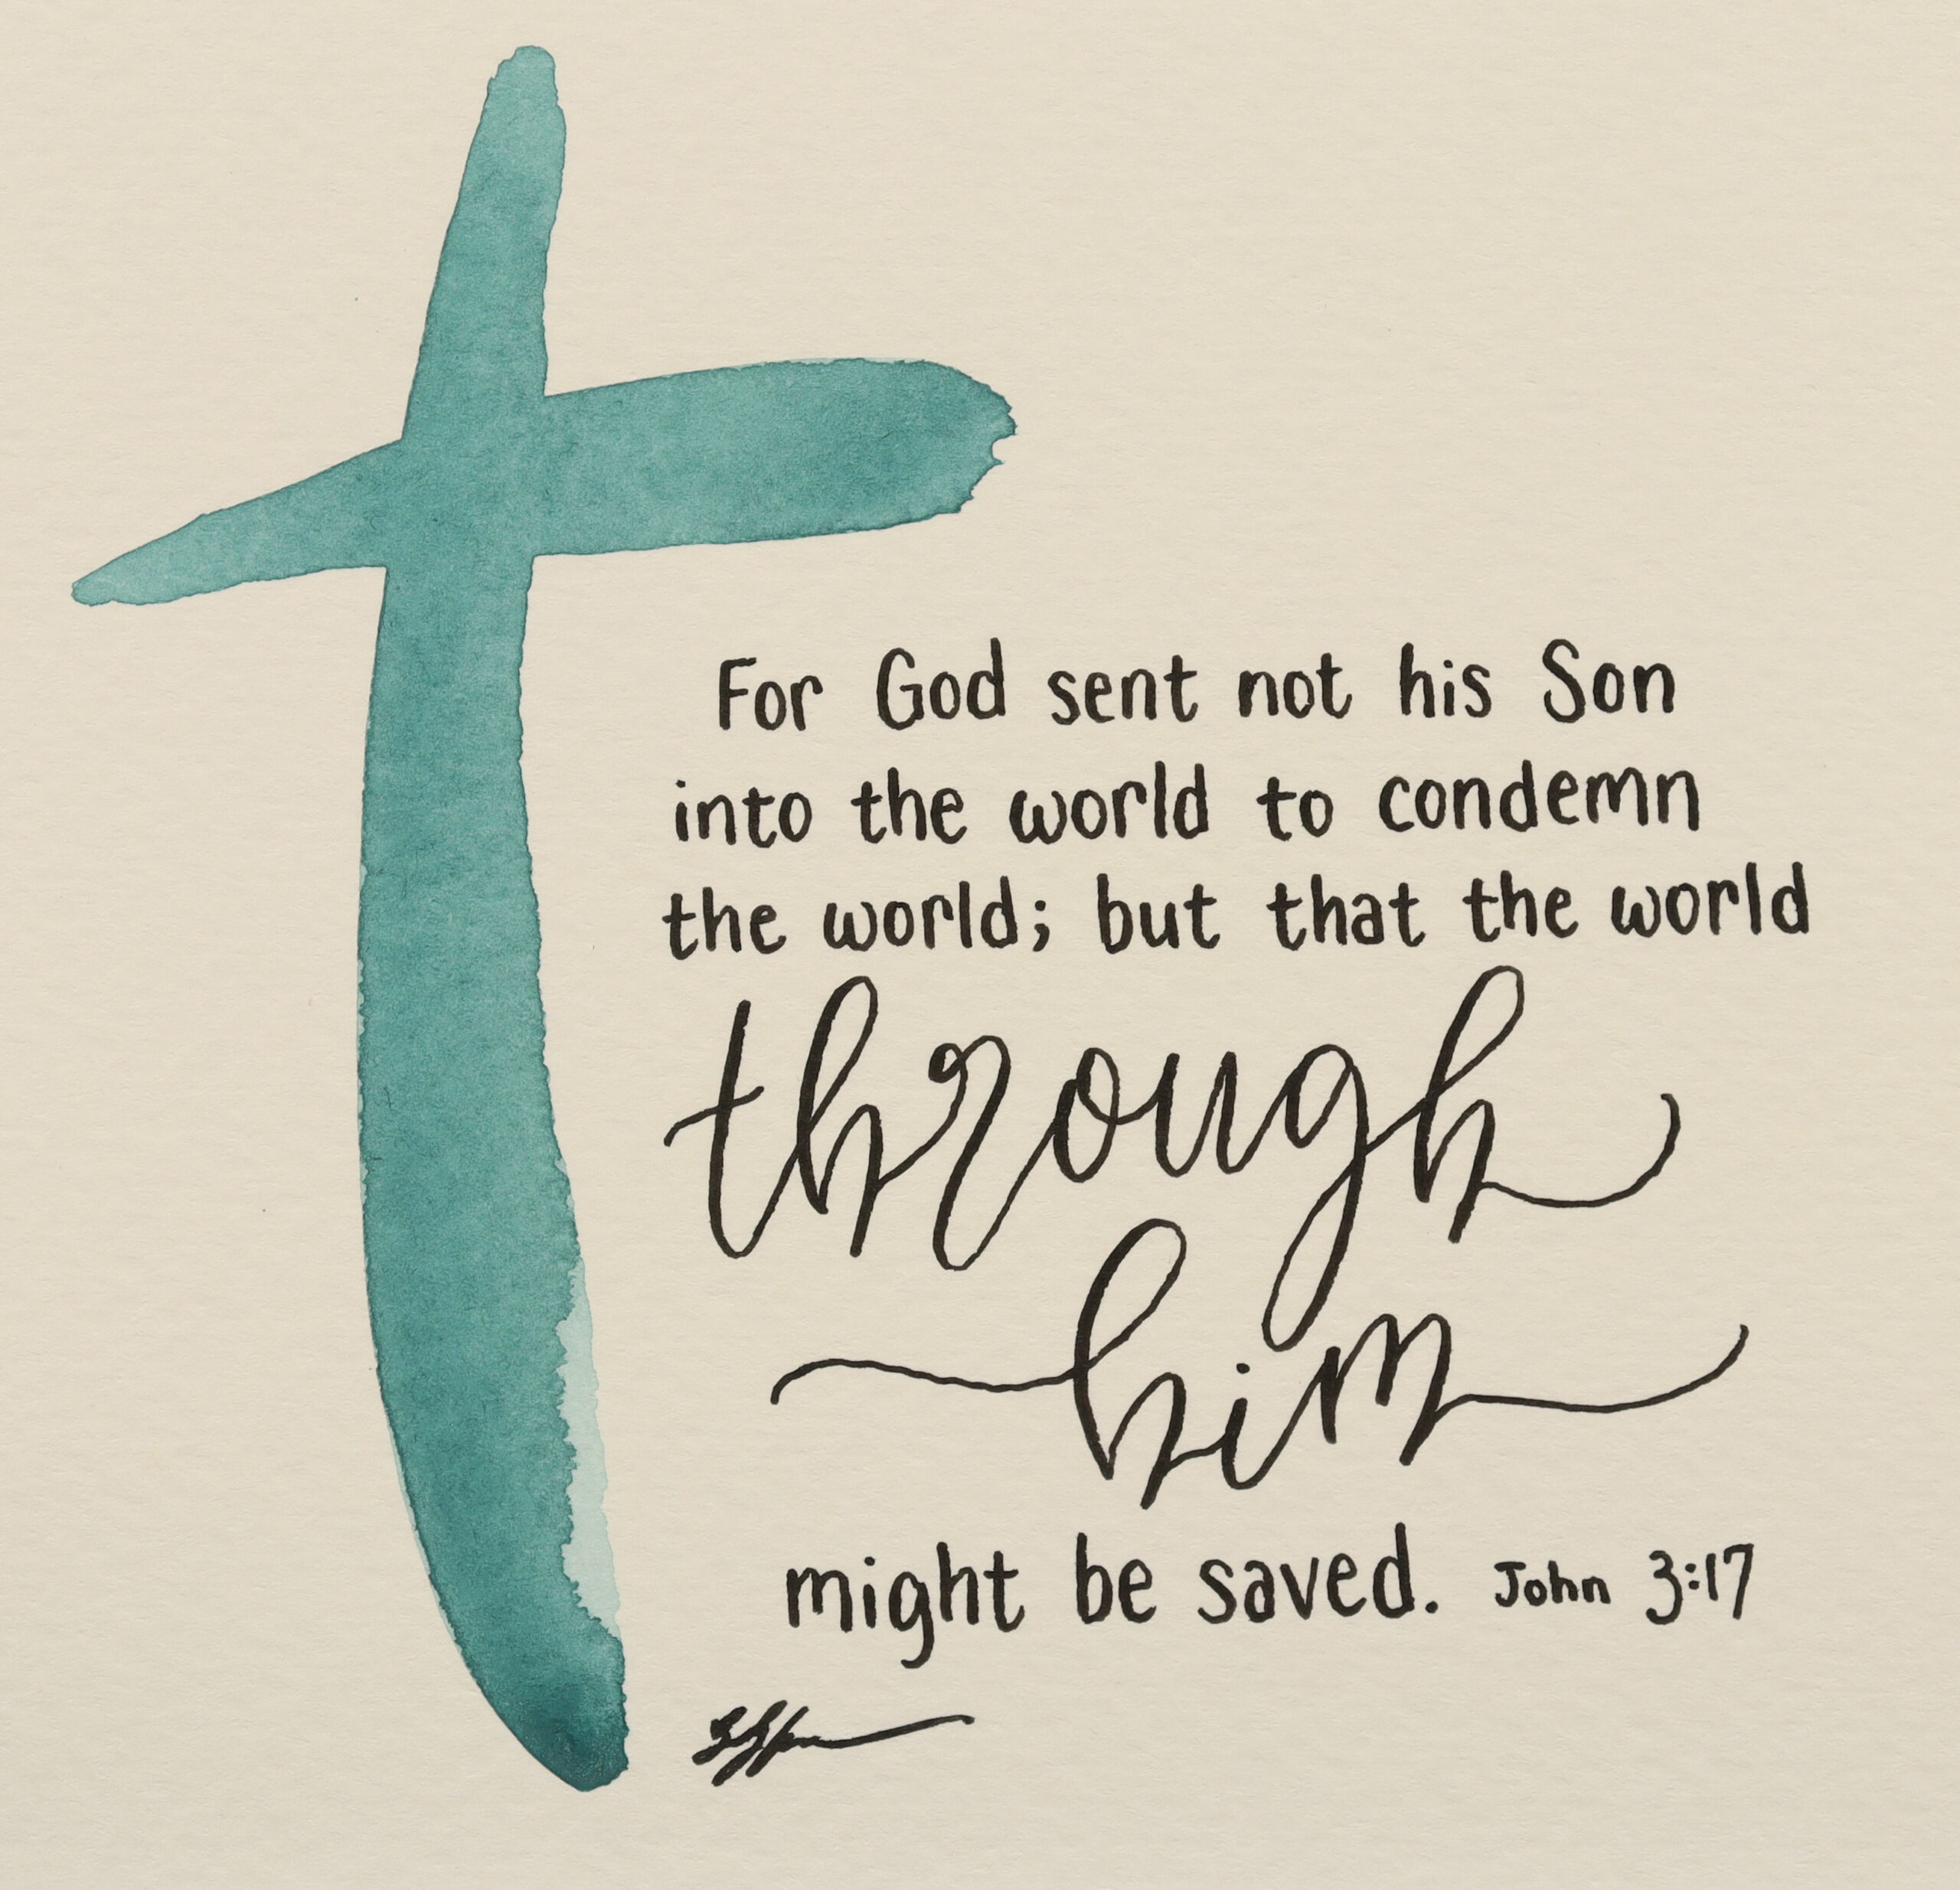 For God sent not his Son
into the world to condemn
the world; but that the world
through
him
might be saved. John 3:17